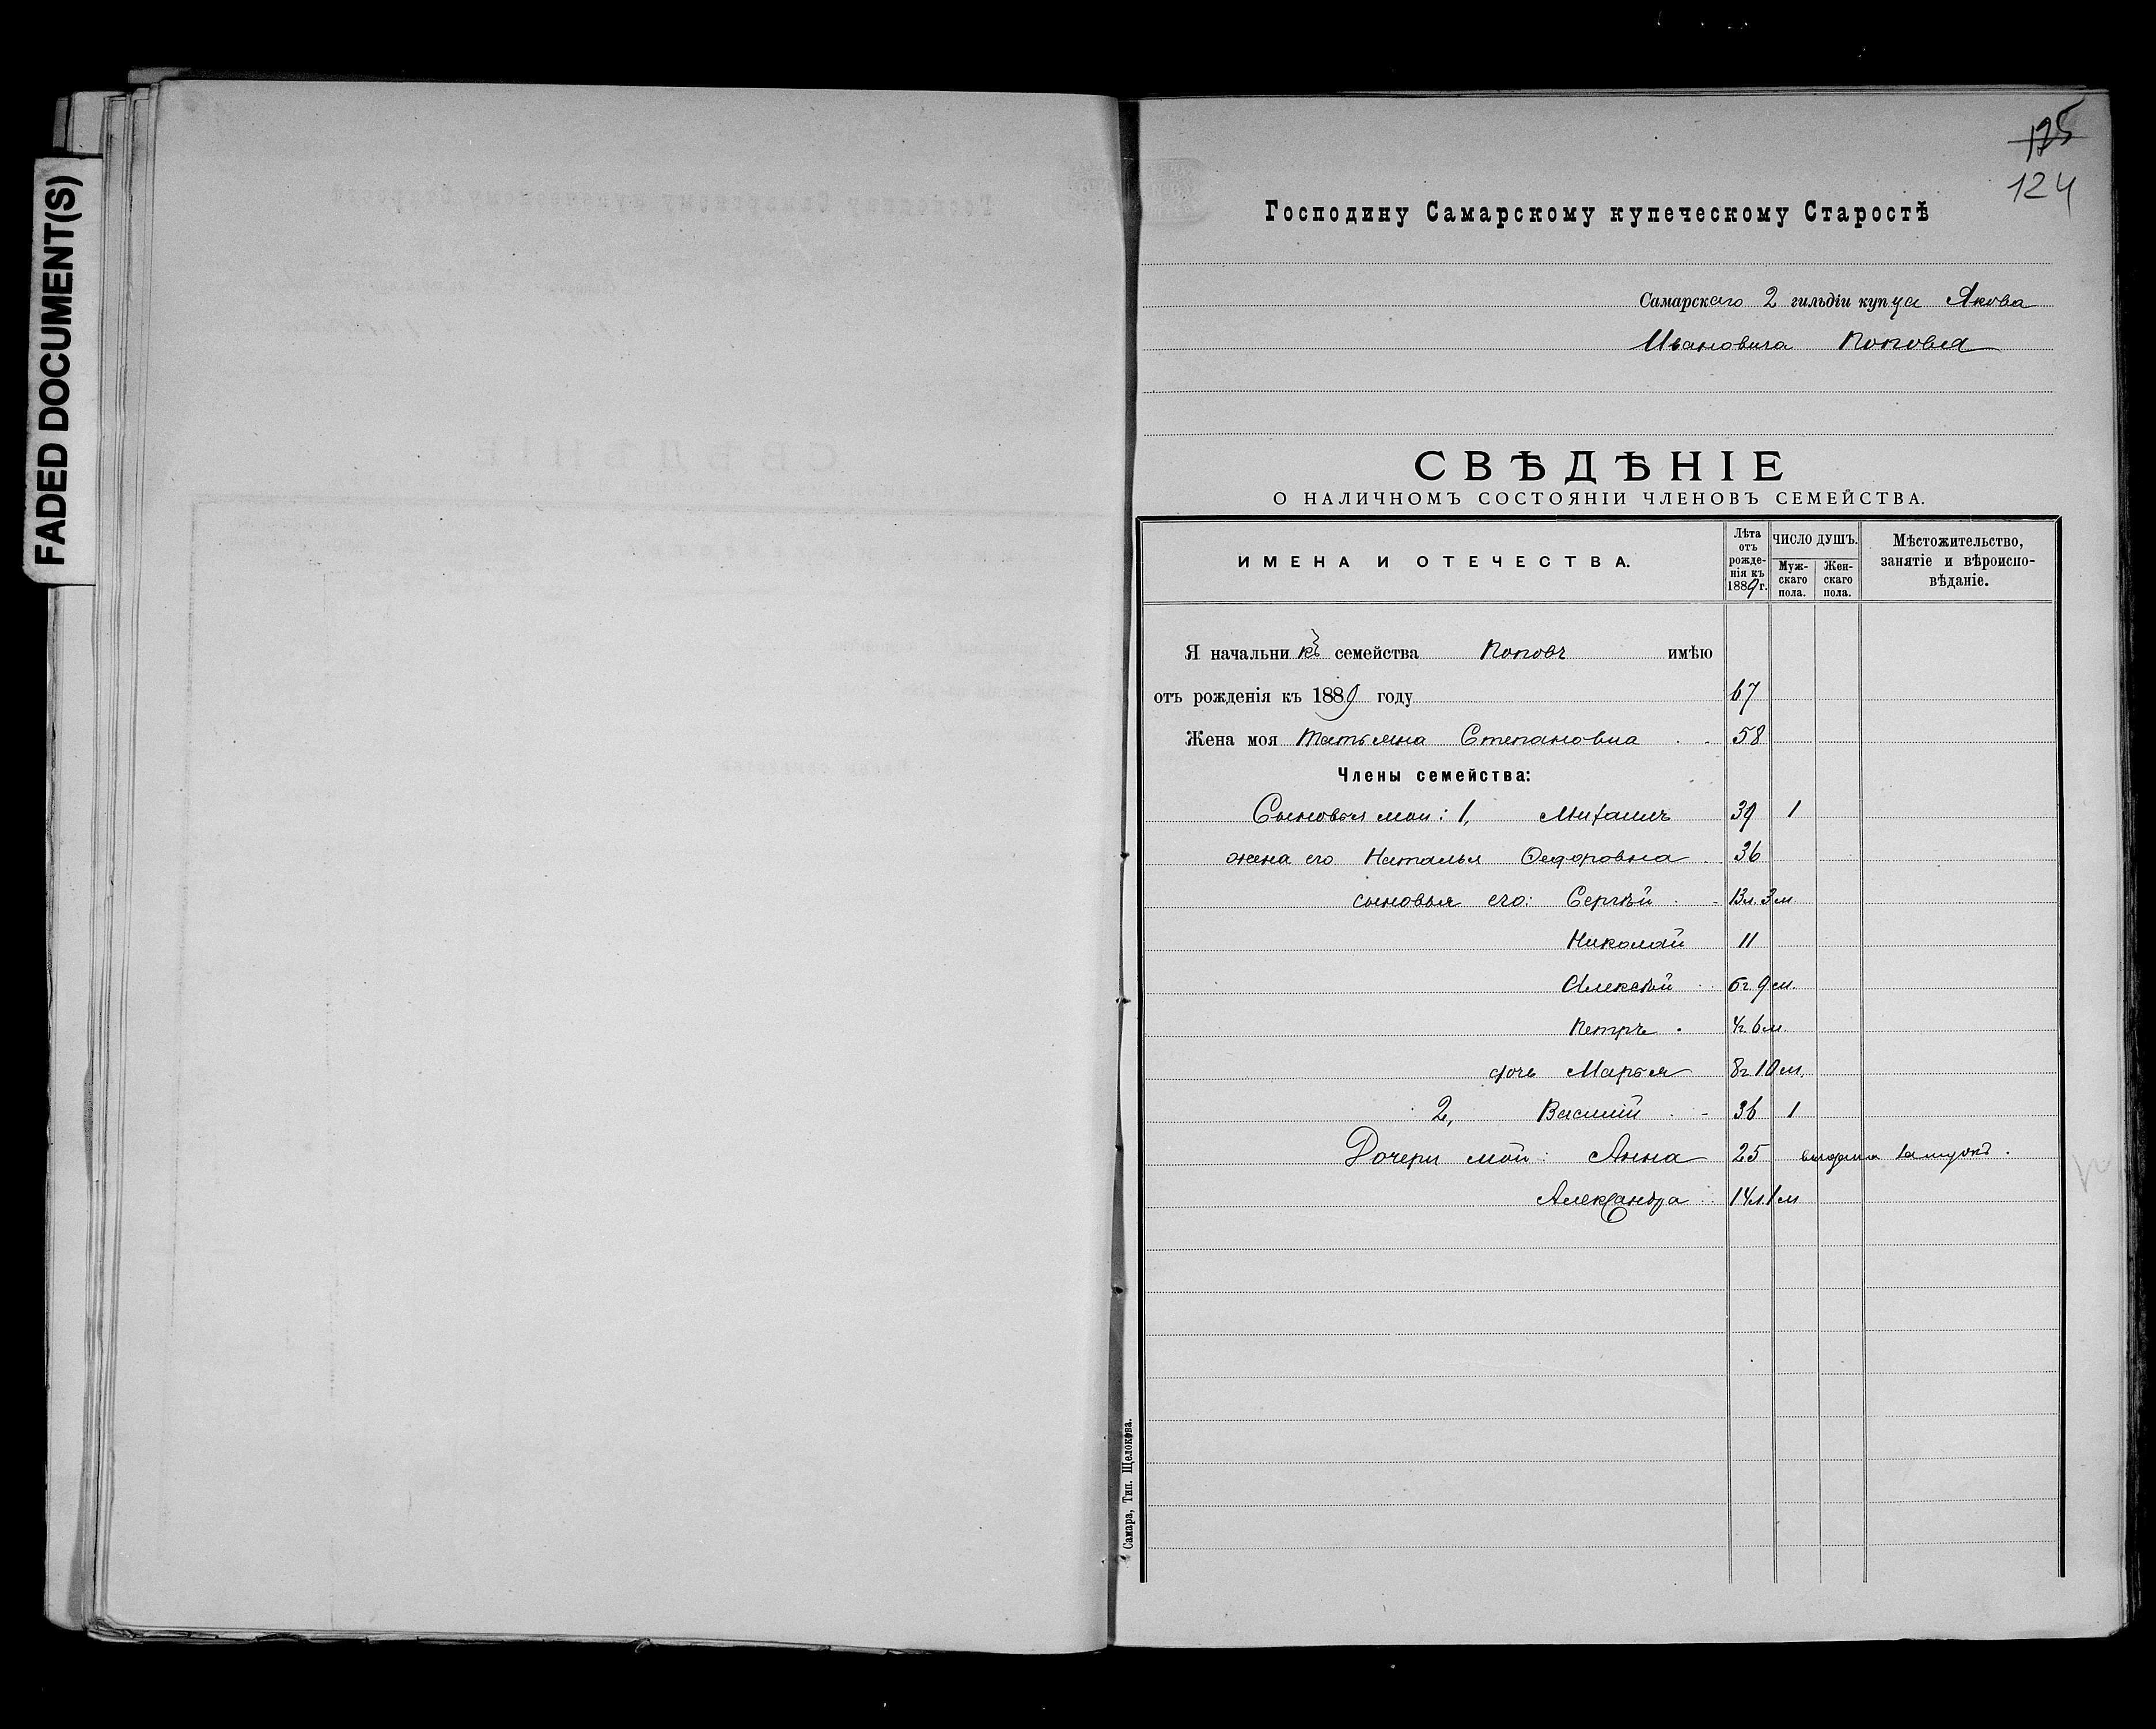 FADED DOCUMENT(S)
125
124
Господину Самарскому купеческому Старостѣ
Самарскаго 2 гильдіи купца Якова
Ивановича Попова
СВѢДѢНІЕ
О НАЛИЧНОМЪ СОСТОЯНІИ ЧЛЕНОВЪ СЕМЕЙСТВА.
ИМЕНА И ОТЕЧЕСТВА.
Лѣта отъ рожде-нія къ 1889 г.
ЧИСЛО ДУШЪ.
Муж-скаго пола.
Жен-скаго пола.
Мѣстожительство, занятіе и вѣроиспо-вѣданіе.
Я начальникъ семейства Поповъ имѣю
отъ рожденія къ 1889 году 67
Жена моя Татьяна Степановна 58
Члены семейства:
Сыновья мои: 1, Михаилъ 39 1
жена его Наталья Ѳедоровна 36
сыновья его: Сергѣй 13л. 3м.
Николай 11
Алексѣй 6г. 9м.
Петръ 4г. 6м.
дочь Марья 8г. 10м.
2, Василій 36 1
Дочери мои: Анна 25 выдана замужъ.
Александра 14л. 1м
Самара, Тип. Щелокова.